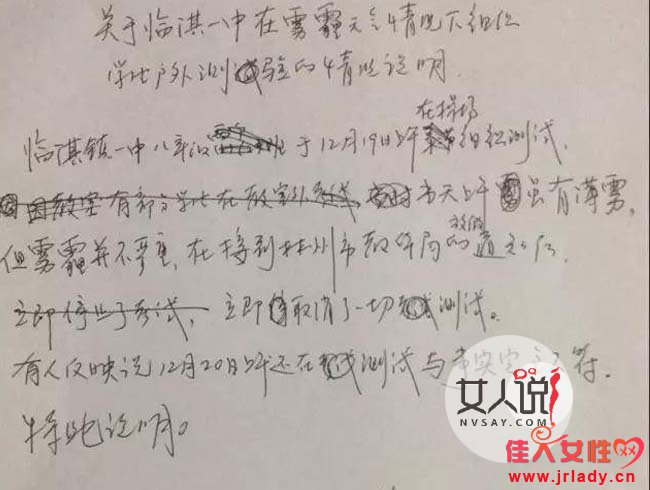 关于临淇一中在雾霾天气情况下组织
学生户外测验的情况说明
在操场
临淇镇一中八年级 于12月19日上午 组织测试,
因教室有部分学生在教室外考试, 当天上午 虽有薄雾,
放假
但雾霾并不严重,在接到林州市教体局的通知后,
立即停止了考试, 立即取消了一切 测试。
有人反映说12月20日上午还在 测试与事实完全不符.
特此说明。
女人说
NVSAY.COM
佳人女性网
www.jrlady.com